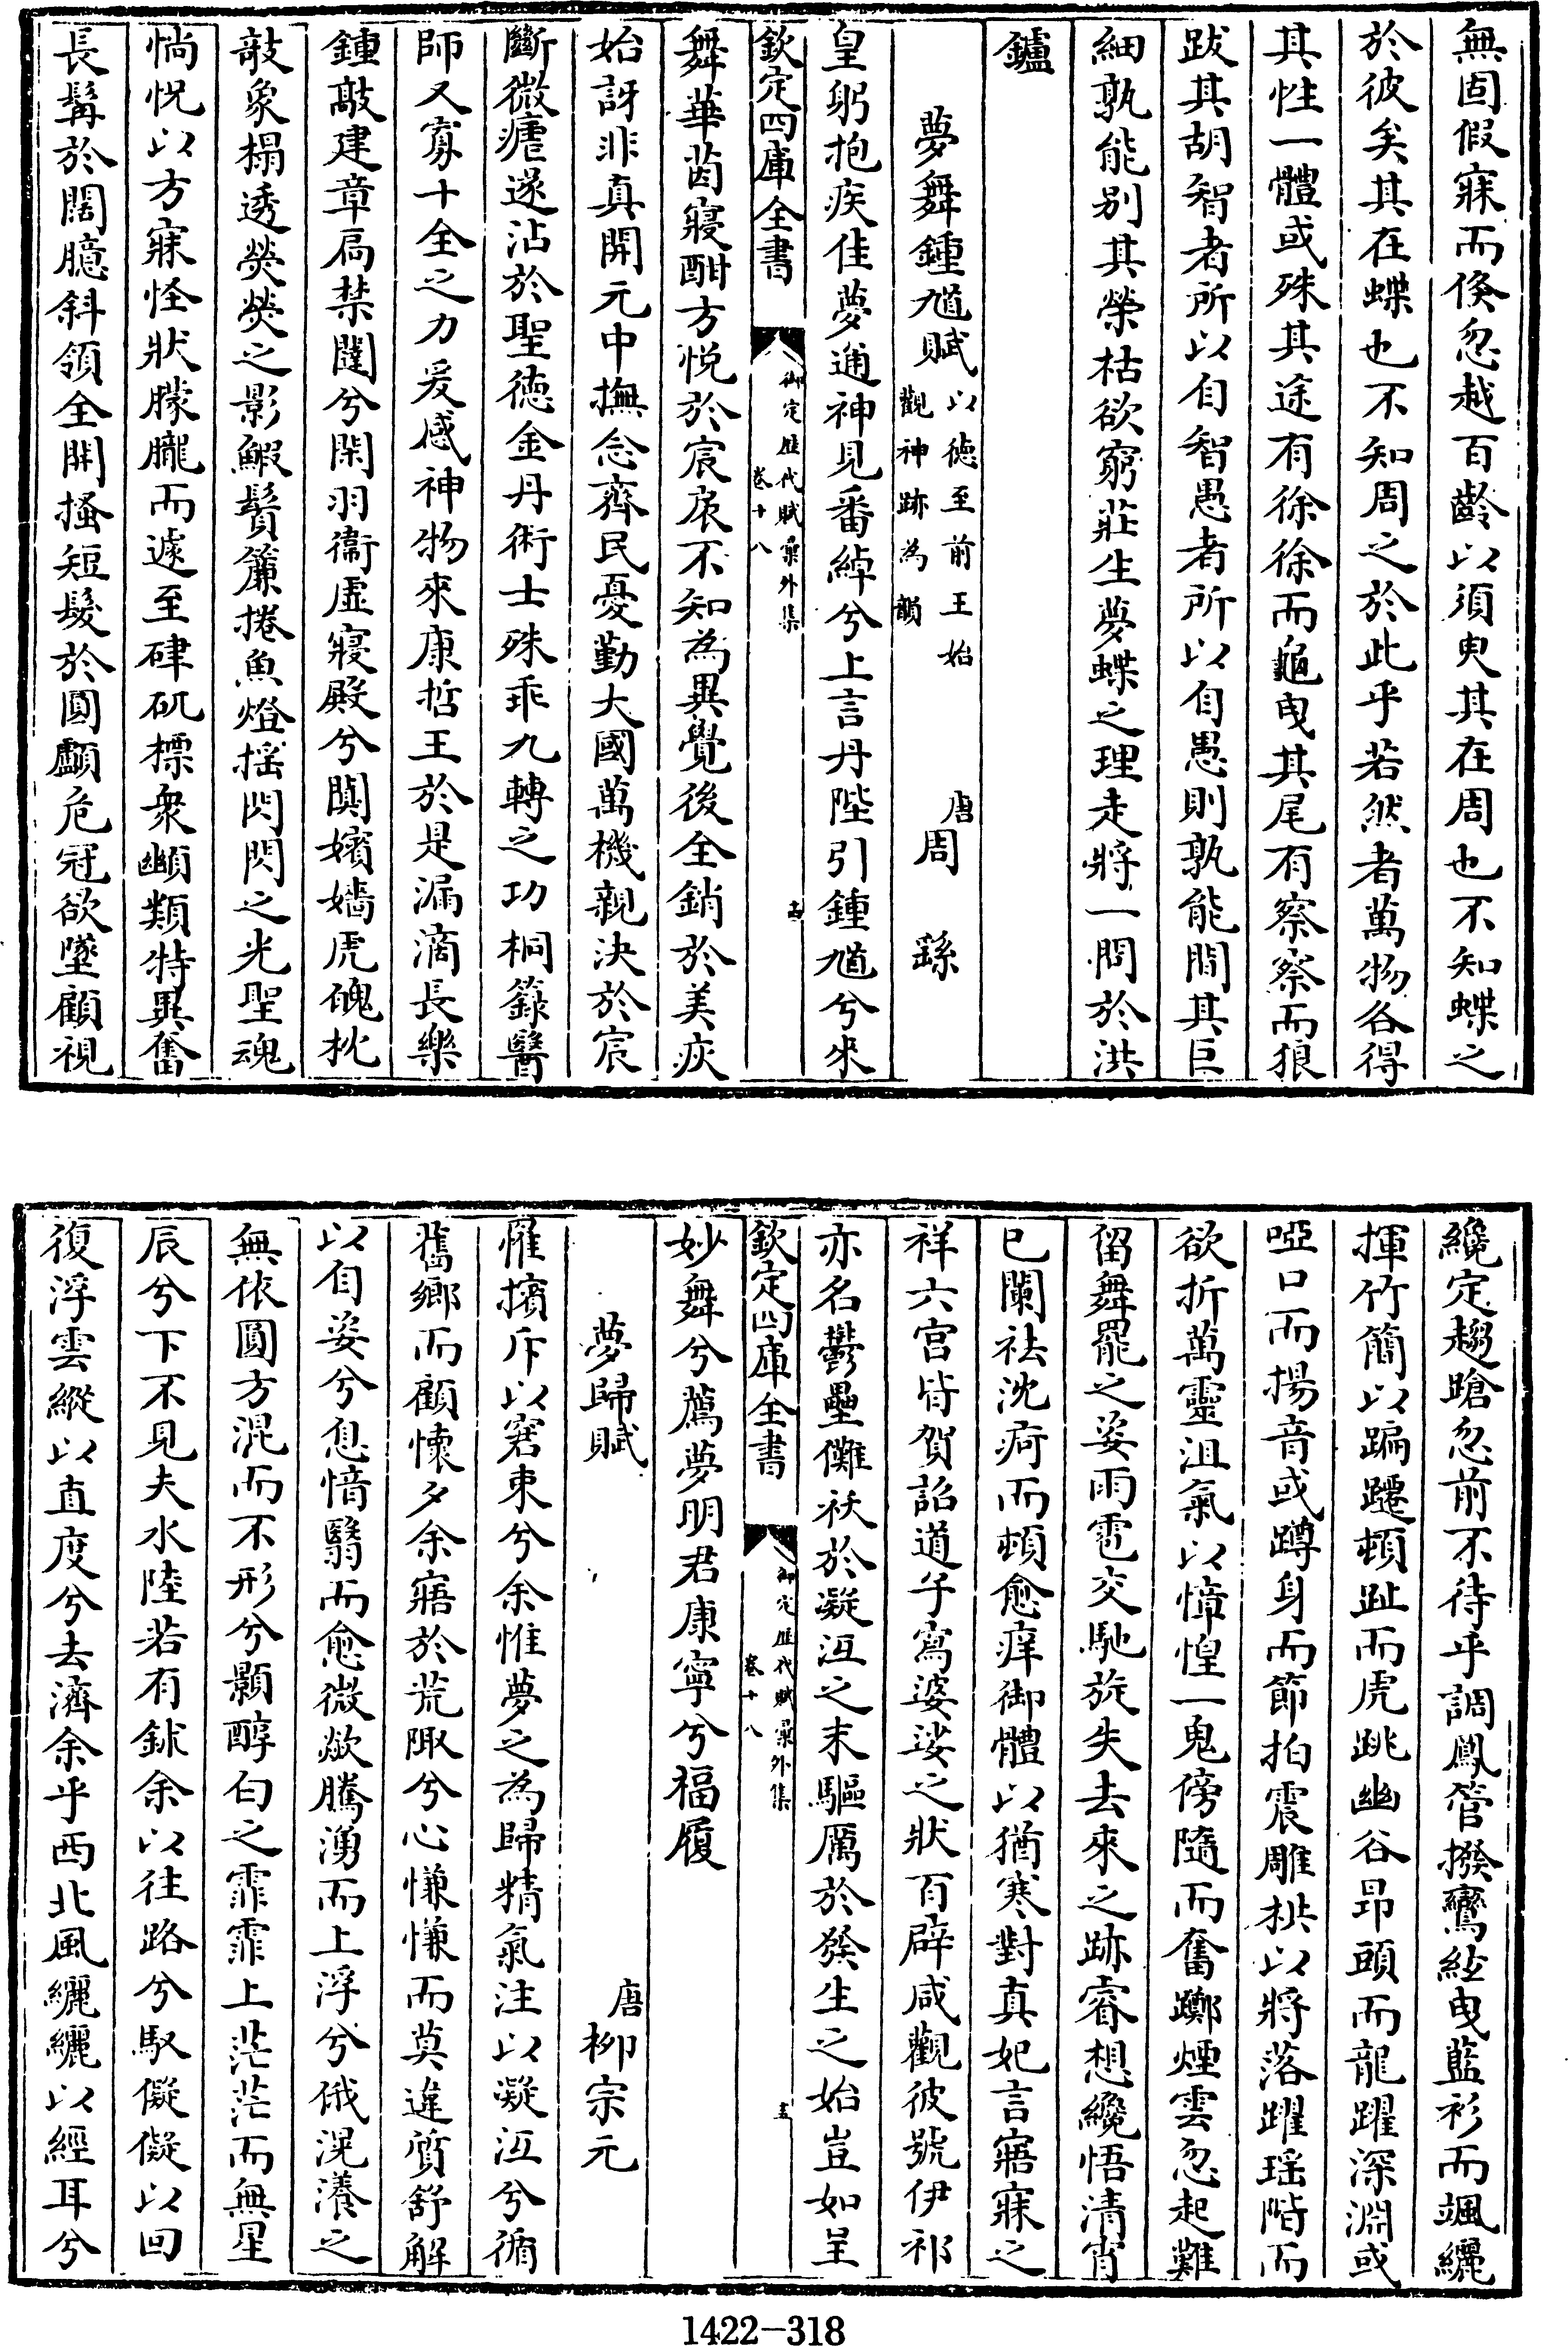 無固假寐而倏忽越百齡以須臾其在周也不知蝶之
於彼矣其在蝶也不知周之於此乎若然者萬物各得
其性一體或殊其途有徐徐而龜曳其尾有察察而狼
跋其胡智者所以自智愚者所以自愚則孰能間其巨
細孰能别其榮枯欲窮莊生夢蝶之理走將一問於洪
鑪
夢舞鍾馗賦以德至前王始觀神跡為韻 唐周 繇
皇躬抱疾佳夢通神見番綽兮上言丹陛引鍾馗兮來
欽定四庫全書 御定歷代賦彙外集 卷十八 十四
舞華茵寢酣方悦於宸扆不知為異覺後全銷於美疢
始訝非真開元中撫念齊民憂勤大國萬機親決於宸
斷微瘧遂沾於聖德金丹術士殊乖九轉之功桐籙醫
師又寡十全之力爰感神物來康哲王於是漏滴長樂
鍾敲建章扃禁闥兮閑羽衞虛寢殿兮闃嬪嬙虎魄枕
敧象榻透熒熒之影鰕鬚簾捲魚燈搖閃閃之光聖魂
惝怳以方寐怪狀朦朧而遽至硉矹標衆顑類特異奮
長髯於闊臆斜領全開搔短髮於圓顱危冠欲墜顧視
纔定趨蹌忽前不待乎調鳳管撥鸞絃曳藍衫而颯纚
揮竹簡以蹁躚頓趾而虎跳幽谷昂頭而龍躍深淵或
啞口而揚音或蹲身而節拍震雕栱以將落躍瑶階而
欲折萬靈沮氣以慞惶一鬼傍隨而奮躑煙雲忽起難
留舞罷之姿雨雹交馳旋失去來之跡睿想纔悟清宵
已闌祛沈疴而頓愈痒御體以猶寒對真妃言寤寐之
祥六宫皆賀詔道子寫婆娑之狀百辟咸觀彼號伊祁
亦名鬱壘儺祅於凝沍之末驅厲於發生之始豈如呈
欽定四庫全書 御定歷代賦彙外集 卷十八 十五
妙舞兮薦夢明君康寧兮福履
夢歸賦 唐柳宗元
罹擯斥以窘束兮余惟夢之為歸精氣注以凝沍兮循
舊鄉而顧懷夕余寤於荒陬兮心慊慊而莫違質舒解
以自姿兮息愔翳而愈微歘騰湧而上浮兮俄滉瀁之
無依圓方混而不形兮顥醇白之霏霏上茫茫而無星
辰兮下不見夫水陸若有鉥余以往路兮馭儗儗以回
復浮雲縱以直度兮去濟余乎西北風纚纚以經耳兮
1422-318